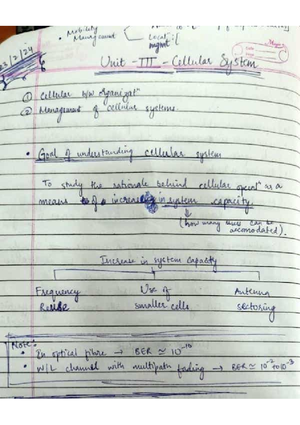 • Mobility
Management
Locatⁿ
mgmt
23/2/24
Unit - III - Cellular System
① Cellular N/w Organizatⁿ
② Management of cellular systems
• Goal of understanding cellular system
To study the rationale behind cellular operatⁿ as a
means of increase in system capacity.
(how many users can be
accomodated).
Increase in system capacity
Frequency Use of Antenna
Reuse smaller cells sectoring
Note:-
• In optical fibre → BER ≃ 10⁻¹⁰
• W/L channel with multipath fading → BER ≃ 10⁻² to 10⁻³